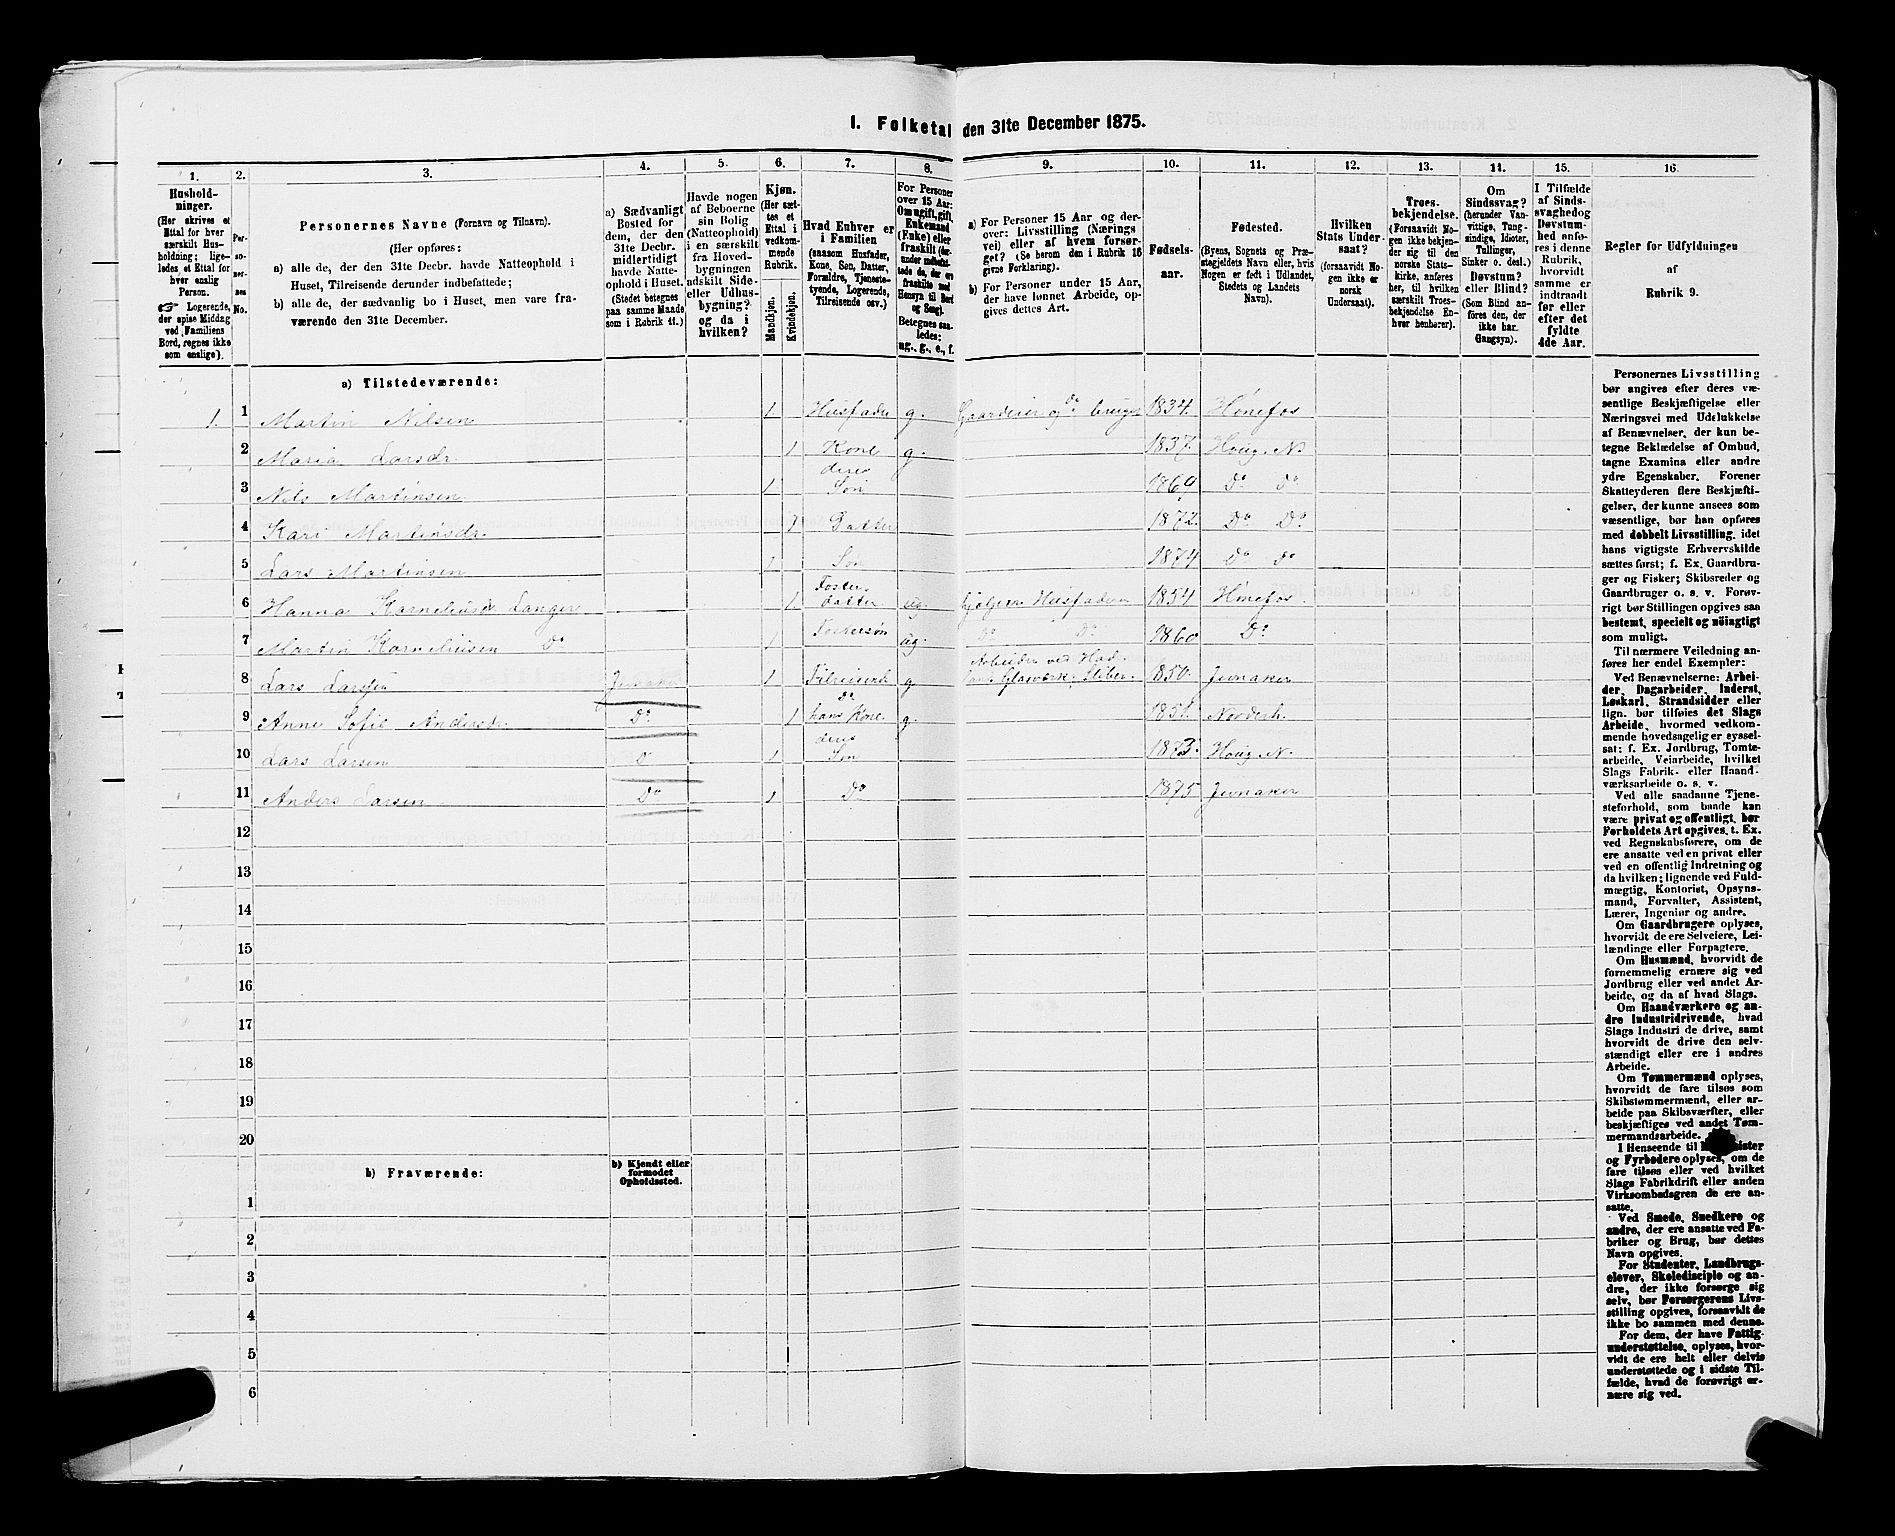 1. Folketal den 31te December 1875.
1. 2. 3. 4. 5. 6. 7. 8. 9. 10. 11. 12. 13. 14. 15. 16.
Hushold-
ninger.
(Her skrives et
Ettal for hver
særskilt Hus-
holdning; lige-
ledes et Ettal for
hver enslig
Person.
☞ Logerende,
der spise Middag
ved Familiens
Bord, regnes ikke
som enslige).
Per-
so-
ner-
nes
No.
Personernes Navne (Fornavn og Tilnavn).
(Her opføres:
a) alle de, der den 31te Decbr. havde Natteophold i
Huset, Tilreisende derunder indbefattede;
b) alle de, der sædvanlig bo i Huset, men vare fra-
værende den 31te December.
a) Sædvanligt
Bosted for
dem, der den
31te Decbr.
midlertidigt
havde Natte-
ophold i Huset.
(Stedet betegnes
paa samme Maade
som i Rubrik 11.)
Havde nogen
af Beboerne
sin Bolig
(Natteophold)
i en særskilt
fra Hoved-
bygningen
adskilt Side-
eller Udhus-
bygning?
og da i
hvilken?
Kjøn.
(Her sæt-
tes et
Ettal i
vedkom-
mende
Rubrik.
Mandkjøn.
Kvindekjøn.
Hvad Enhver er
i Familien
(saasom Husfader,
Kone, Søn, Datter,
Forældre, Tjeneste-
tyende, Logerende,
Tilreisende osv.)
For Personer
over 15 Aar:
Om ugift, gift,
Enkemand
(Enke) eller
fraskilt (her-
under indbefat-
tede de, der ere
fraskilte med
Hensyn til Bord
og Seng).
Betegnes saa-
ledes:
ug., g., e., f.
a) For Personer 15 Aar og der-
over: Livsstilling (Nærings-
vei) eller af hvem forsør-
get? (Se herom den i Rubrik 16
givne Forklaring).
b) For Personer under 15 Aar,
der have lønnet Arbeide, op-
gives dettes Art.
Fødsels-
aar.
Fødested.
(Byens, Sognets og Præ-
stegjeldets Navn eller, hvis
Nogen er født i Udlandet,
Stedets og Landets
Navn).
Hvilken
Stats Under-
saat?
(forsaavidt No-
gen ikke er
norsk
Undersaat).
Troes-
bekjendelse.
(Forsaavidt No-
gen ikke bekjen-
der sig til den
norske Stats-
kirke, anføres
her, til hvilken
særskilt Troes-
bekjendelse En-
hver henhører).
Om
Sindssvag?
(herunder Van-
vittige, Tung-
sindige, Idioter,
Tullinger,
Sinker o. desl.)
Døvstum?
eller Blind?
(Som Blind an-
føres den, der
ikke har
Gangsyn).
I Tilfælde
af Sinds-
svaghed og
Døvstum-
hed anfø-
res i denne
Rubrik,
hvorvidt
samme er
indtraadt
før eller
efter det
fyldte
4de Aar.
Regler for Udfyldningen
af
Rubrik 9.
a) Tilstedeværende:
1. 1 Martin Nilsen 1 Husfader g. Gaardeier og do bruger 1834. Hønefos
2 Maria Larsdr 1 Kone g. 1837. Houg. N
3 Nils Martinsen 1 deres Søn 1869 Do Do
4 Kari Martinsdr 1 Datter 1872. Do Do
5 Lars Martinsen 1 Søn 1874 Do Do
6 Hanna Korneliusd Langer 1 Foster-datter ug. hjælper Husfaderen 1854 Hønefos.
7 Martin Korneliusen Do 1 Fostersøn ug. Do Do 1860 Do
8 Lars Larssen Jevnaker 1 Tilreisende g. Arbeider ved Glasværk, Sliber. 1850. Jevnaker
9 Anne Sofie Andersdr Do 1 Do hans Kone g. 1851. Norderh.
10 Lars Larsen 1 deres Søn 1873. Houg. N.
11 Anders Larsen Do 1 Do 1875 Jevnaker
12
13
14
15
16
17
18
19
20
b) Fraværende: b) Kjendt eller
formodet
Opholdssted.
1
2
3
4
5
6
Personernes Livsstilling
bør angives efter deres væ-
sentlige Beskjæftigelse eller
Næringsvei med Udelukkelse
af Benævnelser, der kun be-
tegne Beklædelse af Ombud,
tagne Examina eller andre
ydre Egenskaber. Forener
Skatteyderen flere Beskjæfti-
gelser, der kunne ansees som
væsentlige, bør han opføres
med dobbelt Livsstilling, idet
hans vigtigste Erhvervskilde
sættes først; f. Ex. Gaardbru-
ger og Fisker; Skibsreder og
Gaardbruger o. s. v. Forøv-
rigt bør Stillingen opgives saa
bestemt, specielt og nøiagtigt
som muligt.
Til nærmere Veiledning an-
føres her endel Exempler:
Ved Benævnelserne: Arbei-
der, Dagarbeider, Inderst,
Løskarl, Strandsidder eller
lign. bør tilføies det Slags
Arbeide, hvormed vedkom-
mende hovedsagelig er syssel-
sat: f. Ex. Jordbrug, Tomte-
arbeide, Veiarbeide, hvilket
Slags Fabrik- eller Haand-
værksarbeide o. s. v.
Ved alle saadanne Tjene-
steforhold, som baade kan
være privat og offentligt, bør
Forholdets Art opgives, t. Ex.
ved Regnskabsførere, om de
ere ansatte ved en privat eller
ved en offentlig Indretning og
da hvilken; lignende ved Fuld-
mægtig, Kontorist, Opsyns-
mand, Forvalter, Assistent,
Lærer, Ingeniør og andre.
Om Gaardbrugere oplyses,
hvorvidt de ere Selveiere, Lei-
lændinge eller Forpagtere.
Om Husmænd, hvorvidt de
fornemmelig ernære sig ved
Jordbrug eller ved andet Ar-
beide, og da af hvad Slags.
Om Haandværkere og an-
dre Industridrivende, hvad
Slags Industri de drive, samt
hvorvidt de drive den selv-
stændigt eller ere i andres
Arbeide.
Om Tømmermænd oplyses,
hvorvidt de fare tilsøs som
Skibstømmermænd, eller ar-
beide paa Skibsværfter, eller
beskjæftiges ved andet Tøm-
mermandsarbeide.
I Henseende til
og Fyrbødere oplyses, om de
fare tilsøs eller ved hvilket
Slags Fabrikdrift eller anden
Virksombedsgren de ere an-
satte.
Ved Smede, Snedkere og
andre, der ere ansatte ved Fa-
briker og Brug, bør dettes
Navn opgives.
For Studenter, Landbrugs-
elever, Skoledisciple og an-
dre, der ikke forsørge sig
selv, bør Forsørgerens Livs-
stilling opgives, forsaavidt de
ikke bo sammen med denne.
For dem, der have Fattig-
understøttelse, oplyses, hvor-
vidt de ere helt eller delvis
understøttede og i sidste Til-
fælde, hvad de forøvrigt er-
nære sig ved.